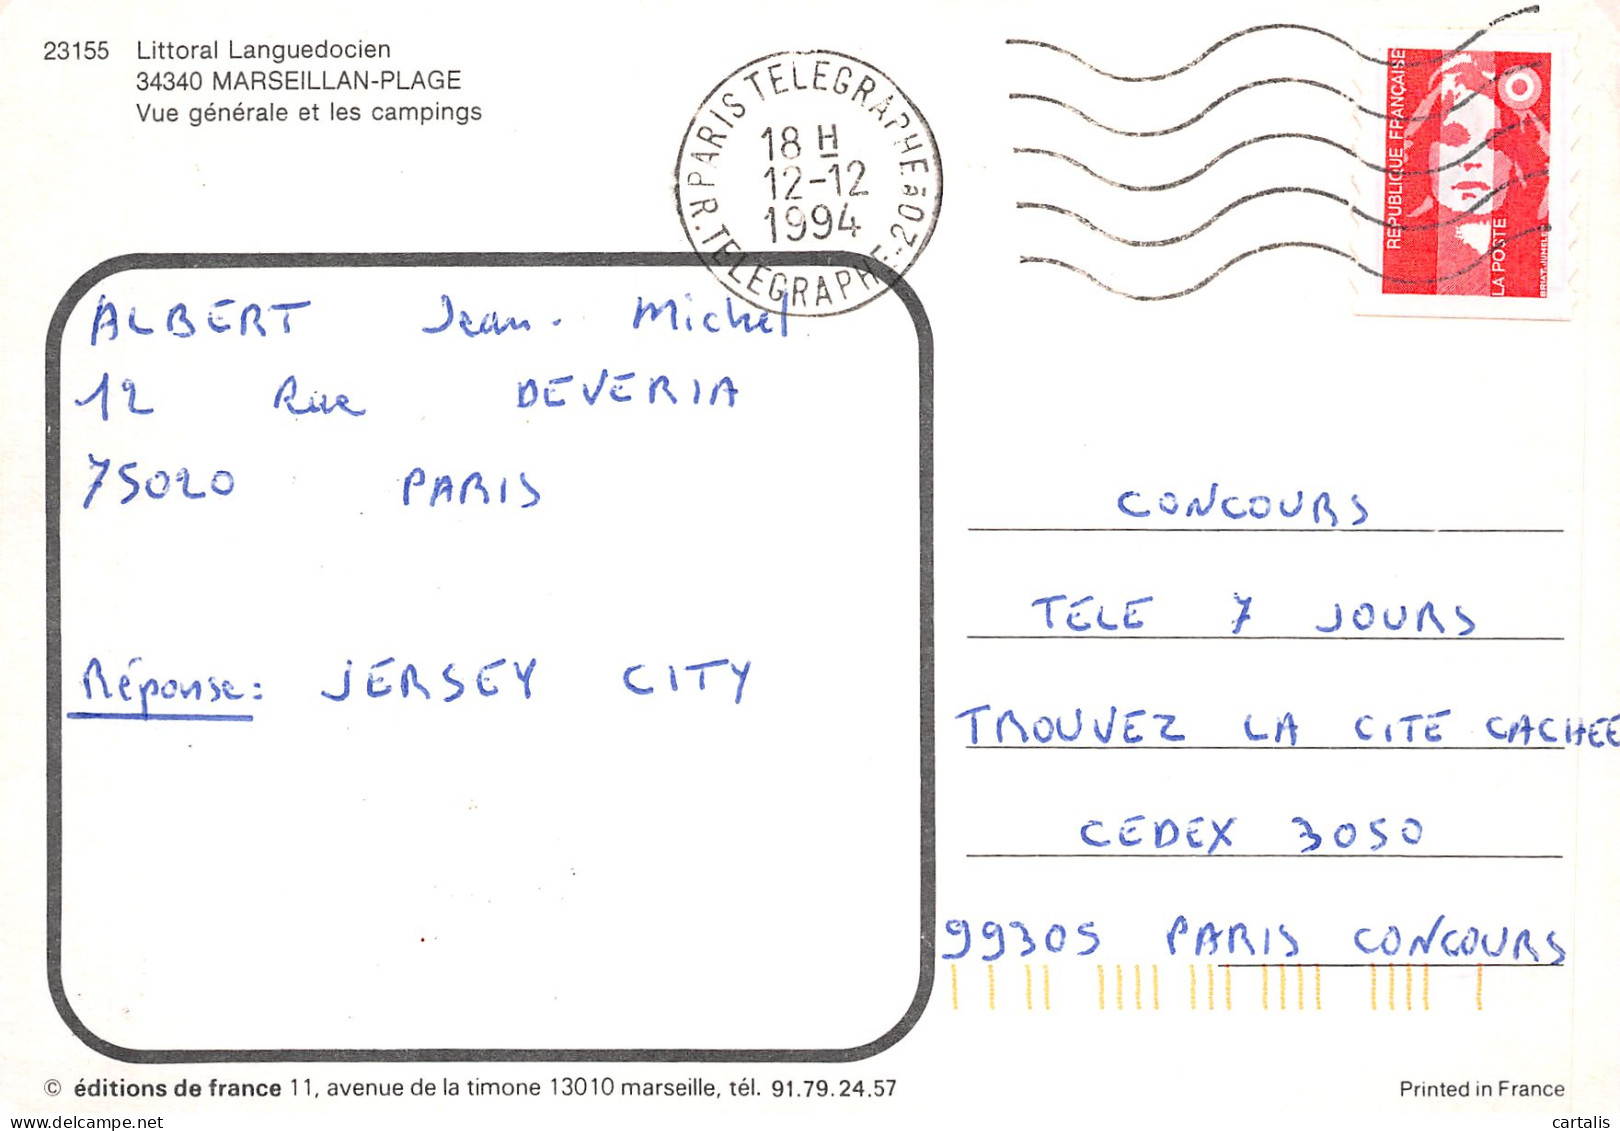 23155 Littoral Languedocien
34340 MARSEILLAN-PLAGE
Vue générale et les campings
PARIS TELEGRAPHE à 20E
18 H
12-12
1994
R. TELEGRAPHE
REPUBLIQUE FRANÇAISE
LA POSTE
ALBERT Jean-Michel
12 Rue DEVERIA
75020 PARIS
Réponse: JERSEY CITY
CONCOURS
TELE 7 JOURS
TROUVEZ LA CITE CACHEE
CEDEX 3050
99305 PARIS CONCOURS
© éditions de france 11, avenue de la timone 13010 marseille, tél. 91.79.24.57
Printed in France
cartalis